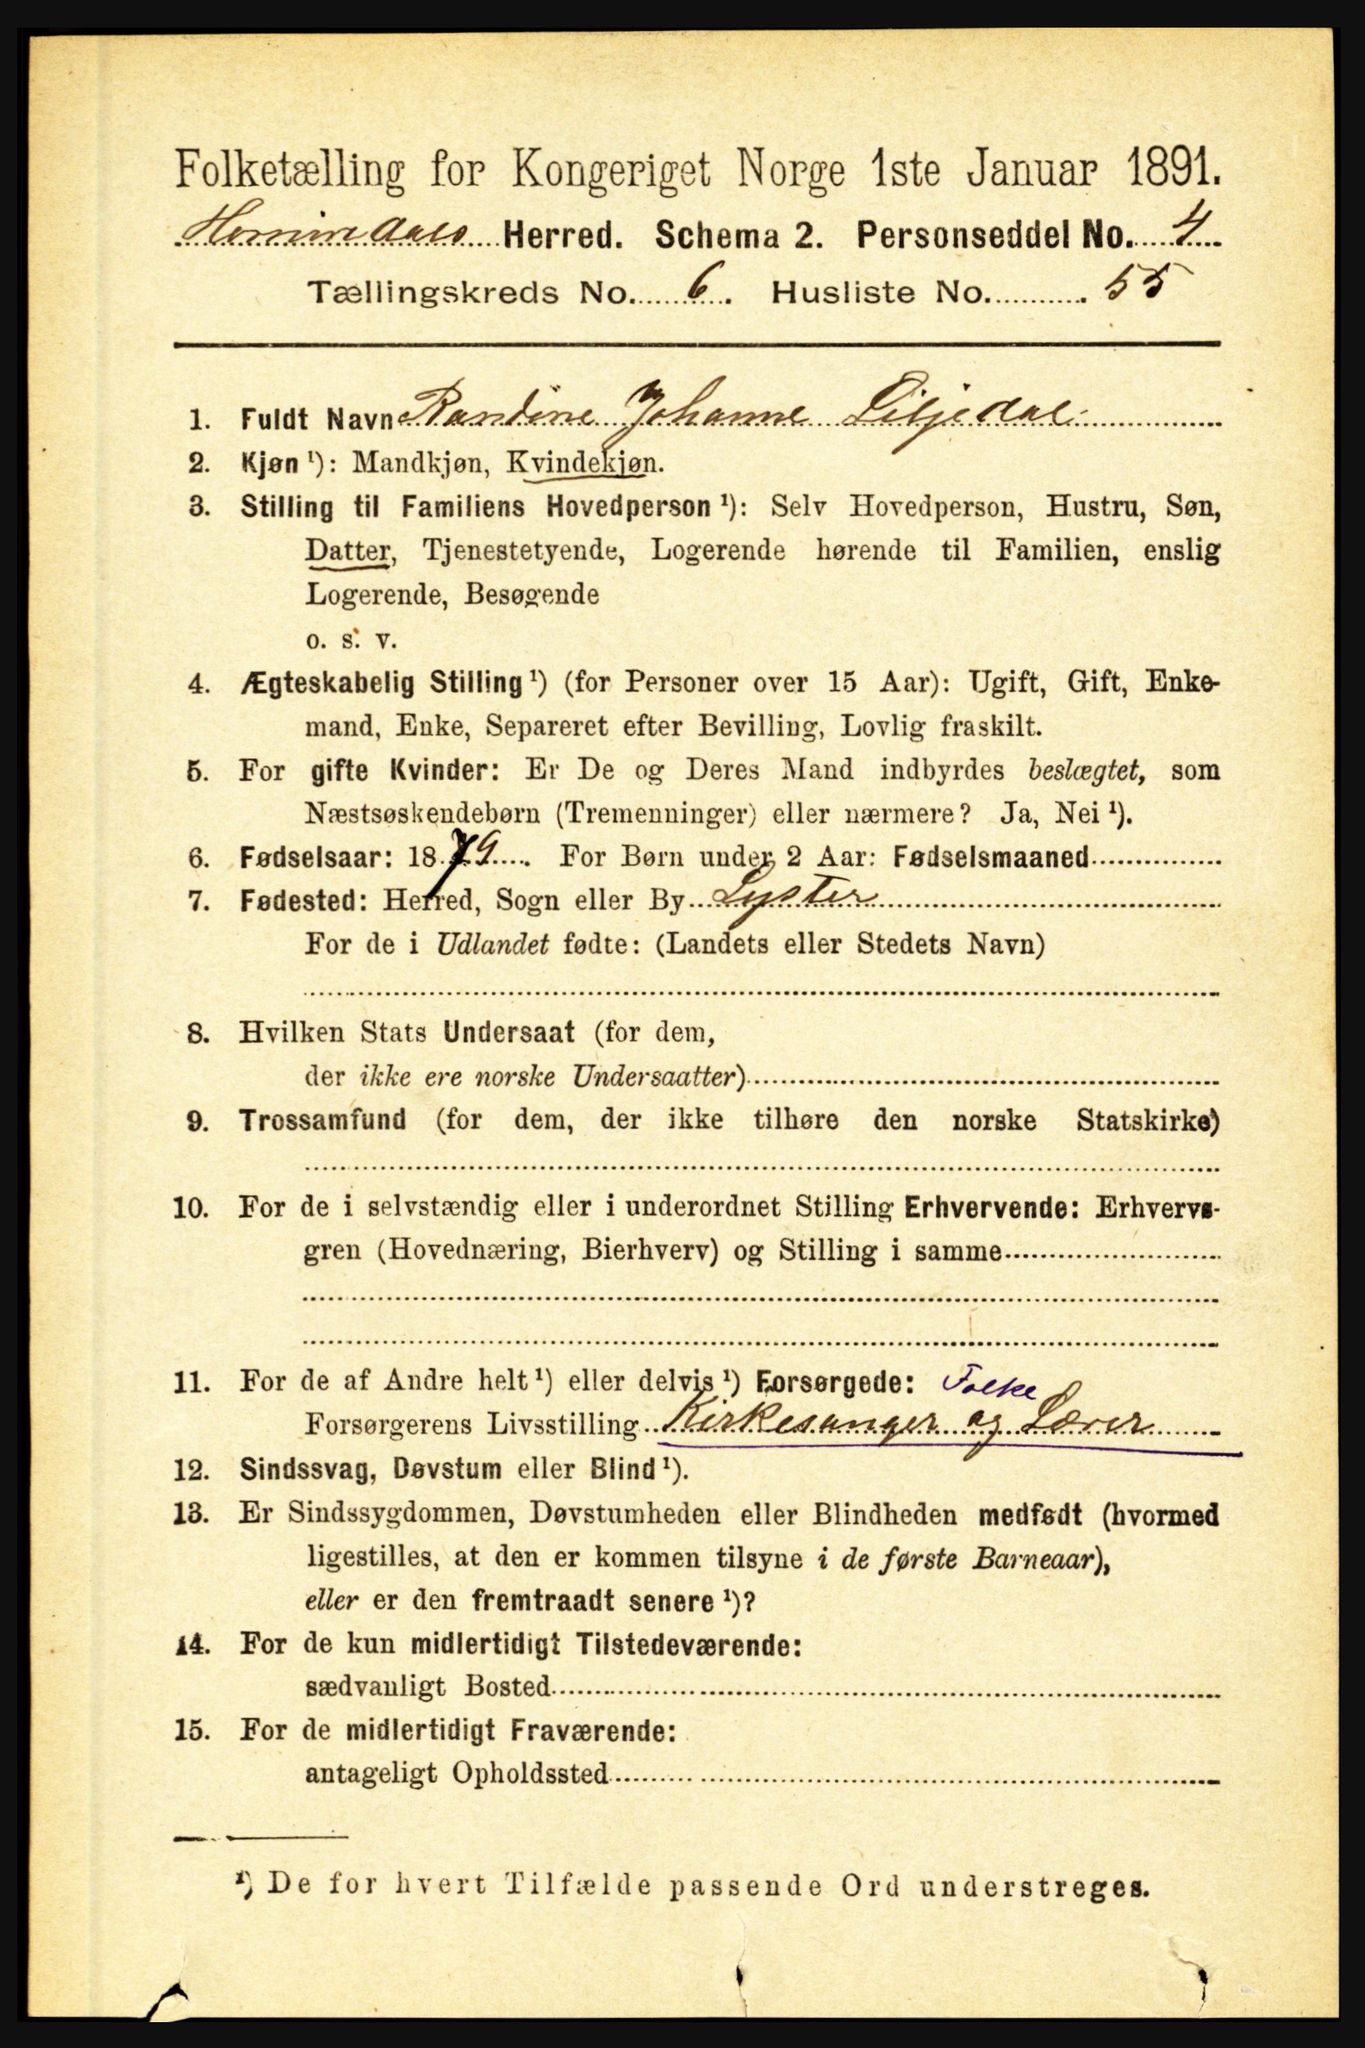 Folketælling for Kongeriget Norge 1ste Januar 1891.
Hornindals Herred. Schema 2. Personseddel No. 4
Tællingskreds No. 6. Husliste No. 55
1. Fuldt Navn Randine Johanne Liljedal
2. Kjøn ¹): Mandkjøn, Kvindekjøn.
3. Stilling til Familiens Hovedperson ¹): Selv Hovedperson, Hustru, Søn,
Datter, Tjenestetyende, Logerende hørende til Familien, enslig
Logerende, Besøgende
o. s. v.
4. Ægteskabelig Stilling ¹) (for Personer over 15 Aar): Ugift, Gift, Enke-
mand, Enke, Separeret efter Bevilling, Lovlig fraskilt.
5. For gifte Kvinder: Er De og Deres Mand indbyrdes beslægtet, som
Næstsøskendebørn (Tremenninger) eller nærmere? Ja, Nei ¹).
6. Fødselsaar: 1879. For Børn under 2 Aar: Fødselsmaaned
7. Fødested: Herred, Sogn eller By Lyster
For de i Udlandet fødte: (Landets eller Stedets Navn)
8. Hvilken Stats Undersaat (for dem,
der ikke ere norske Undersaatter)
9. Trossamfund (for dem, der ikke tilhøre den norske Statskirke)
10. For de i selvstændig eller i underordnet Stilling Erhvervende: Erhvervs-
gren (Hovednæring, Bierhverv) og Stilling i samme
11. For de af Andre helt ¹) eller delvis ¹) Forsørgede: Folke
Forsørgerens Livsstilling Kirkesanger og Lærer
12. Sindssvag, Døvstum eller Blind ¹).
13. Er Sindssygdommen, Døvstumheden eller Blindheden medfødt (hvormed
ligestilles, at den er kommen tilsyne i de første Barneaar),
eller er den fremtraadt senere ¹)?
14. For de kun midlertidigt Tilstedeværende:
sædvanligt Bosted
15. For de midlertidigt Fraværende:
antageligt Opholdssted
¹) De for hvert Tilfælde passende Ord understreges.